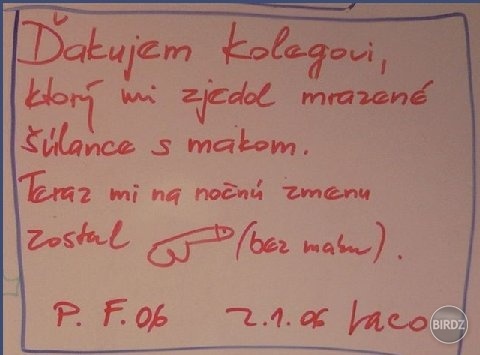 Ďakujem kolegovi,
ktorý mi zjedol mrazené
šúlance s makom.
Teraz mi na nočnú zmenu
zostal (bez maku).
P. F. 06 2.1.06 Laco
BIRDZ